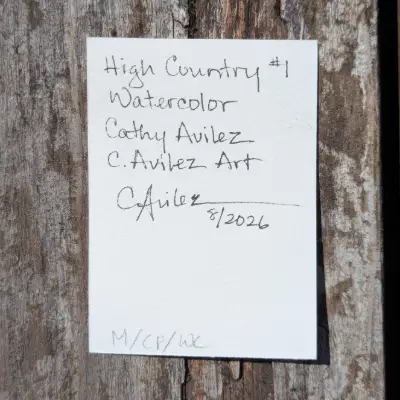 High Country #1
Watercolor
Cathy Avilez
C. Avilez Art
C. Avilez
8/2026
M/CP/WC